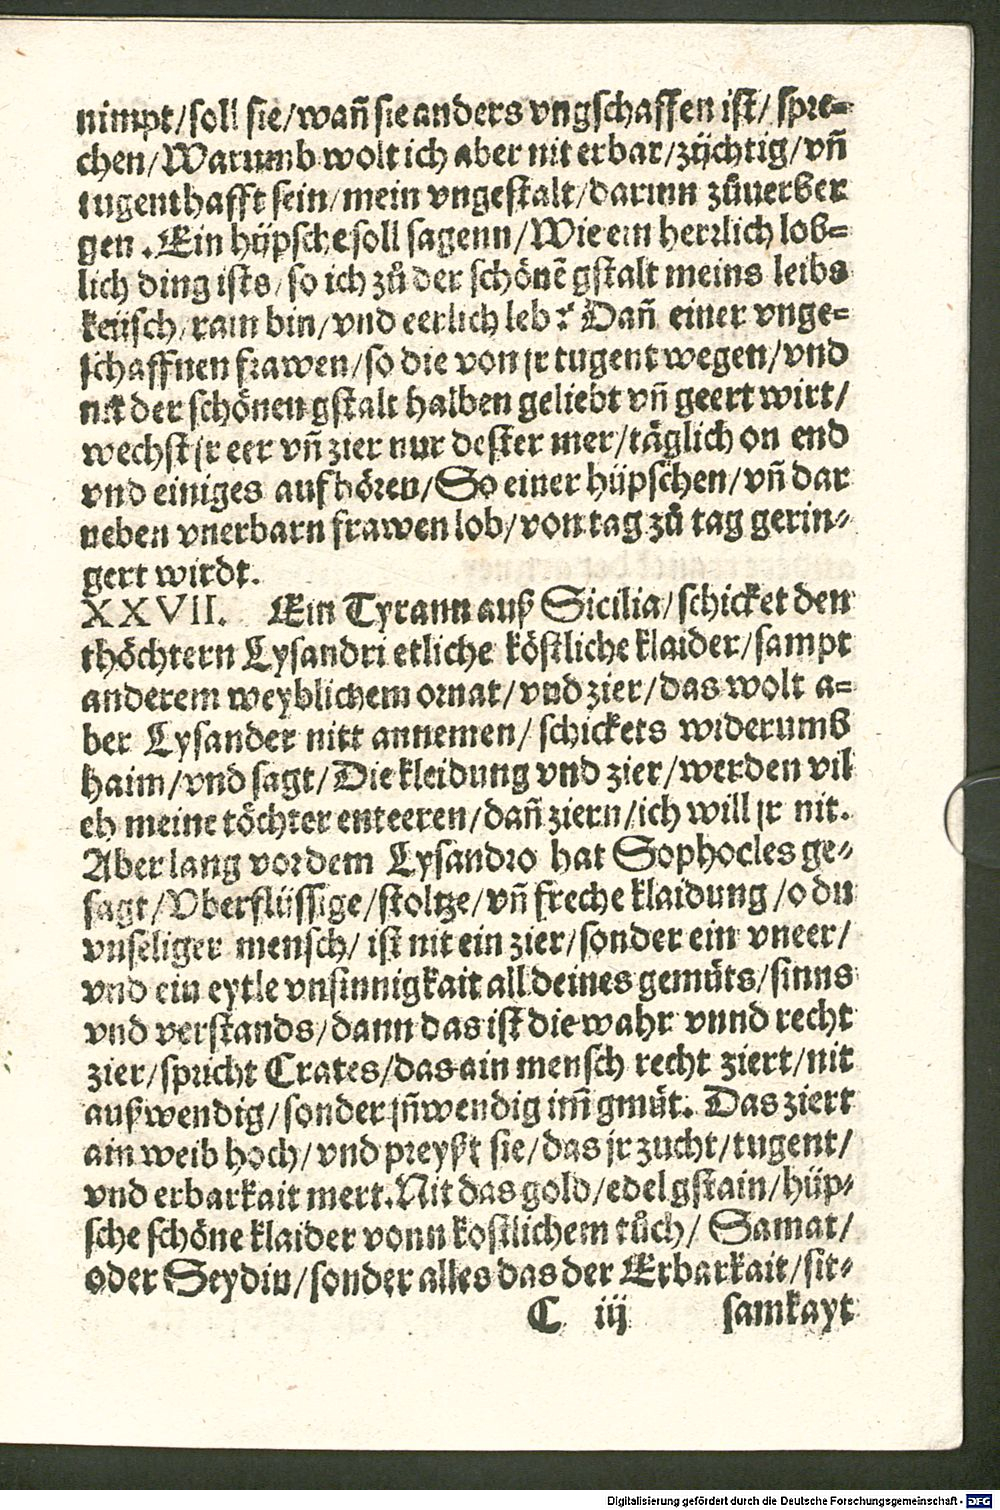 nimpt/soll sie/wañ sie anders vngschaffen ist/ spre=
chen/Warumb wolt ich aber nit erbar/züchtig/vñ
tugenthafft sein/mein vngestalt/darinn zůuerber
gen. Ein hüpsche soll sagenn/Wie ein herrlich lob=
lich ding ists/so ich zů der schönẽ gstalt meins leibs
keüsch/rain bin/vnd eerlich leb? Dañ einer vnge=
schaffnen frawen/so die von jr tugent wegen/vnd
nit der schönen gstalt halben geliebt vñ geert wirt/
wechst jr eer vñ zier nur dester mer/täglich on end
vnd einiges auffhören/So einer hüpschen/vñ dar
neben vnerbarn frawen lob/von tag zů tag gerin=
gert wirdt.
XXVII. Ein Tyrann auß Sicilia/schicket den
thöchtern Lysandri etliche köstliche klaider/sampt
anderem weyblichem ornat/vnd zier/das wolt a=
ber Lysander nitt annemen/ schickets widerumb
haim/vnd sagt/Die kleidung vnd zier/werden vil
eh meine töchter enteeren/dañ ziern/ich will jr nit.
Aber lang vor dem Lysandro hat Sophocles ge=
sagt/Vberflüssige/stoltze/vñ freche klaidung/o du
vnseliger mensch/ ist nit ein zier/sonder ein vneer/
vnd ein eytle vnsinnigkait all deines gemüts/sinns
vnd verstands/dann das ist die wahr vnnd recht
zier/spricht Crates/das ain mensch recht ziert/nit
außwendig/sonder jñwendig im̃ gmüt. Das ziert
ain weib hoch/vnd preyßt sie/das jr zucht/tugent/
vnd erbarkait mert. Nit das gold/edel gstain/hüp=
sche schöne klaider vonn kostlichem tůch/ Samat/
oder Seydin/sonder alles das der Erbarkait/sit=
C iij samkayt
Digitalisierung gefördert durch die Deutsche Forschungsgemeinschaft - DFG